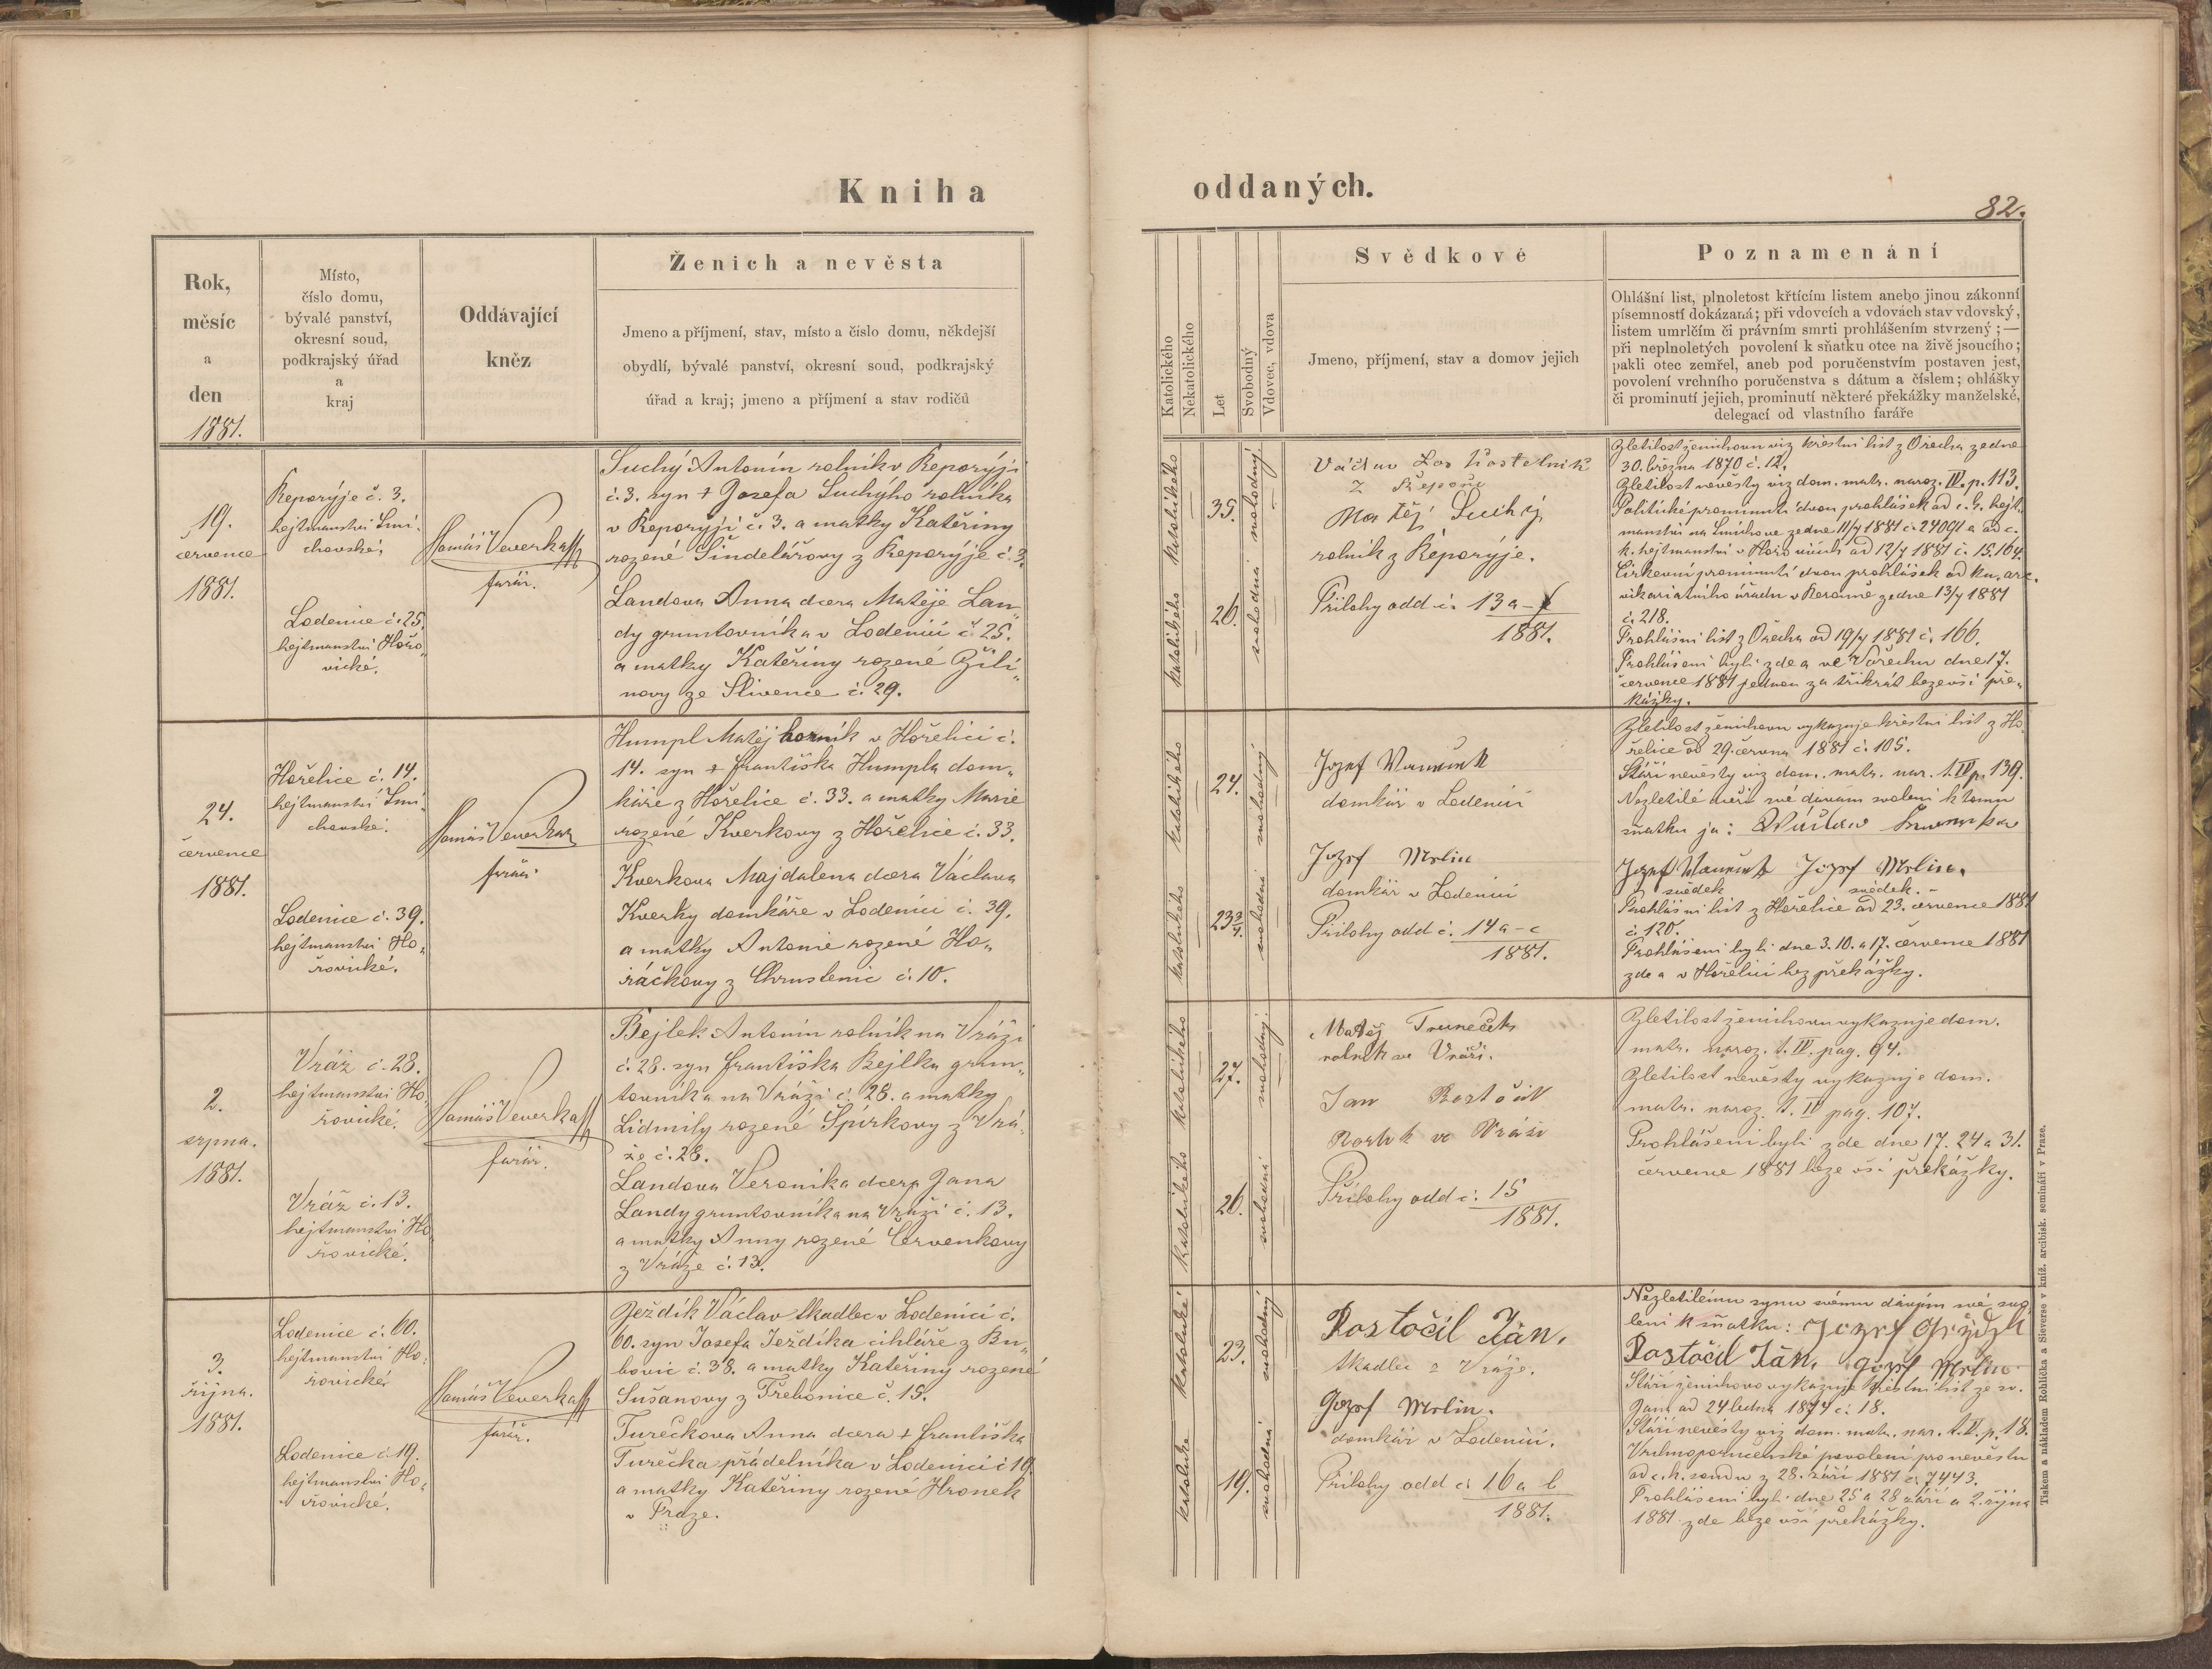 Kniha
oddaných.
82.
Rok,
měsíc
a
den
1881.
Místo,
číslo domu,
bývalé panství,
okresní soud,
podkrajský úřad
a
kraj
Oddávající
kněz
Ženich a nevěsta
Jmeno a příjmení, stav, místo a číslo domu, někdejší
obydlí, bývalé panství, okresní soud, podkrajský
úřad a kraj; jmeno a příjmení a stav rodičů
Katolického
Nekatolického
Let
Svobodný
Vdovec, vdova
Svědkové
Jmeno, příjmení, stav a domov jejich
Poznamenání
Ohlášní list, plnoletost křtícím listem anebo jinou zákonní
písemností dokázaná; při vdovcích a vdovách stav vdovský,
listem umrlčím či právním smrti prohlášením stvrzený; —
při neplnoletých povolení k sňatku otce na živě jsoucího;
pakli otec zemřel, aneb pod poručenstvím postaven jest,
povolení vrchního poručenstva s dátum a číslem; ohlášky
či prominutí jejich, prominutí některé překážky manželské,
delegací od vlastního faráře
19.
července
1881.
Řeporýje č. 3.
hejtmanství Smí-
chovské.
Lodenice č. 25.
hejtmanství Hořo-
vické.
Tomáš Veverka
farář.
Suchý Antonín rolník v Řeporýji
č. 3. syn † Josefa Suchýho rolníka
v Řeporýji č. 3. a matky Kateřiny
rozené Šindelářovy z Řeporýje č. 3.
Landova Anna dcera Matěje Lan-
dy gruntovníka v Lodenici č. 25.
a matky Kateřiny rozené Žili-
novy ze Slivence č. 29.
katolického
katolického
35.
26.
svobodný
svobodná
Václav Kostelník
z
Matěj Suchý
rolník z Řeporýje.
Přílohy odd č. 13 a-f
1881.
Zletilost ženichovu viz křestní list z Ořecha ze dne
30. března 1870 č. 12.
Zletilost nevěsty viz dom. matr. naroz. IV. p. 113.
Politické prominutí dvou prohlášek od c. k. hejt-
manství na Smíchově ze dne 11/7 1881 č. 24091 a od c.
k. hejtmanství v Hořovicích od 12/7 1881 č. 15.164.
Církevní prominutí dvou prohlášek od kn. arc.
vikariátního úřadu v Berouně ze dne 13/7 1881
č. 218.
Prohlášní list z Ořecha od 19/7 1881 č. 166.
Prohlášeni byli zde a ve Vořechu dne 17.
července 1881 jednou za třikrát beze vší pře-
kážky.
24.
července
1881.
Hořelice č. 14.
hejtmanství Smí-
chovské.
Lodenice č. 39.
hejtmanství Ho-
řovické.
Tomáš Veverka
farář
Humpl Matěj horník v Hořelici č.
14. syn † Františka Humpla dom-
káře z Hořelice č. 33. a matky Marie
rozené Kverkovy z Hořelice č. 33.
Kverkova Majdalena dcera Václava
Kverky domkáře v Lodenici č. 39.
a matky Antonie rozené Ho-
ráčkovy z Chrustenic č. 10.
katolického
katolického
24.
23 3/4.
svobodný
svobodná
Jozef Vaníček
domkář v Lodenici
Jozef Mrlin
domkář v Lodenici
Přílohy odd č. 14 a-c
1881.
Zletilost ženichovu vykazuje křestní list z Ho-
řelice od 29. června 1881 č. 105.
Stáří nevěsty viz dom. matr. nar. t. IV p. 139.
Nezletilé dceři své dávám svolení k tomu
sňatku já: Wáclaw
Jozef Vaníček Jozef Mrlin.
svědek svědek.
Prohlášní list z Hořelice od 23. července 1881
č. 120.
Prohlášeni byli dne 3. 10. a 17. července 1881
zde a v Hořelici bez překážky.
2.
srpna.
1881.
Vráž č. 28.
hejtmanství Ho-
řovické.
Vráž č. 13.
hejtmanství Ho-
řovické.
Tomáš Veverka
farář.
Bejlek Antonín rolník na Vráži
č. 28. syn Františka Bejlka grun-
tovníka na Vráži č. 28. a matky
Lidmily rozené Špírkovy z Vrá-
že č. 28.
Landova Veronika dcera Jana
Landy gruntovníka na Vráži č. 13.
a matky Anny rozené Červenkovy
z Vráže č. 13.
katolického
katolického
27.
26.
svobodný.
svobodná
Matěj Truneček
rolník ve Vráži.
Jan Rostočil
ve Vráži
Přílohy odd č. 15
1881.
Zletilost ženichovu vykazuje dom.
matr. naroz. t. IV. pag. 94.
Zletilost nevěsty vykazuje dom.
matr. naroz. t. IV pag. 107.
Prohlášeni byli zde dne 17. 24 a 31.
července 1881 beze vší překážky.
3.
října.
1881.
Lodenice č. 60.
hejtmanství Ho-
řovické.
Lodenice č. 19.
hejtmanství Ho-
řovické.
Tomáš Veverka
farář.
Ježdík Václav tkadlec v Lodenici č.
60. syn Josefa Ježdíka cihláře z Bu-
bovic č. 38. a matky Kateřiny rozené
Sušanovy z Třebonice č. 15.
Turečkova Anna dcera † Františka
Turečka přádelníka v Lodenici č 19.
a matky Kateřiny rozené Hronek
v Praze.
katolické
katolické
23.
19.
svobodný
svobodná
Rostočil Ján.
tkadlec z Vráže.
Jozef Mrlin.
domkář v Lodenici.
Přílohy odd č. 16 a b
1881.
Nezletilému synu svému dávám své svo-
lení k sňatku: Jozef Geždik
Rostočil Ján. Jozef Mrlin
Stáří ženichovo vykazuje křestní list ze sv.
Jana od 24 ledna 1874 č. 18.
Stáří nevěsty viz dom. matr. nar. t. V. p. 18.
Vrchnoporučenské povolení pro nevěstu
od c. k. soudu z 28. září 1881 č. 7443.
Prohlášeni byli dne 25 a 28 září a 2. října
1881 zde beze vší překážky.
Tiskem a nákladem Rohlíčka a Sieverse v kníž. arcibisk. semináři v Praze.